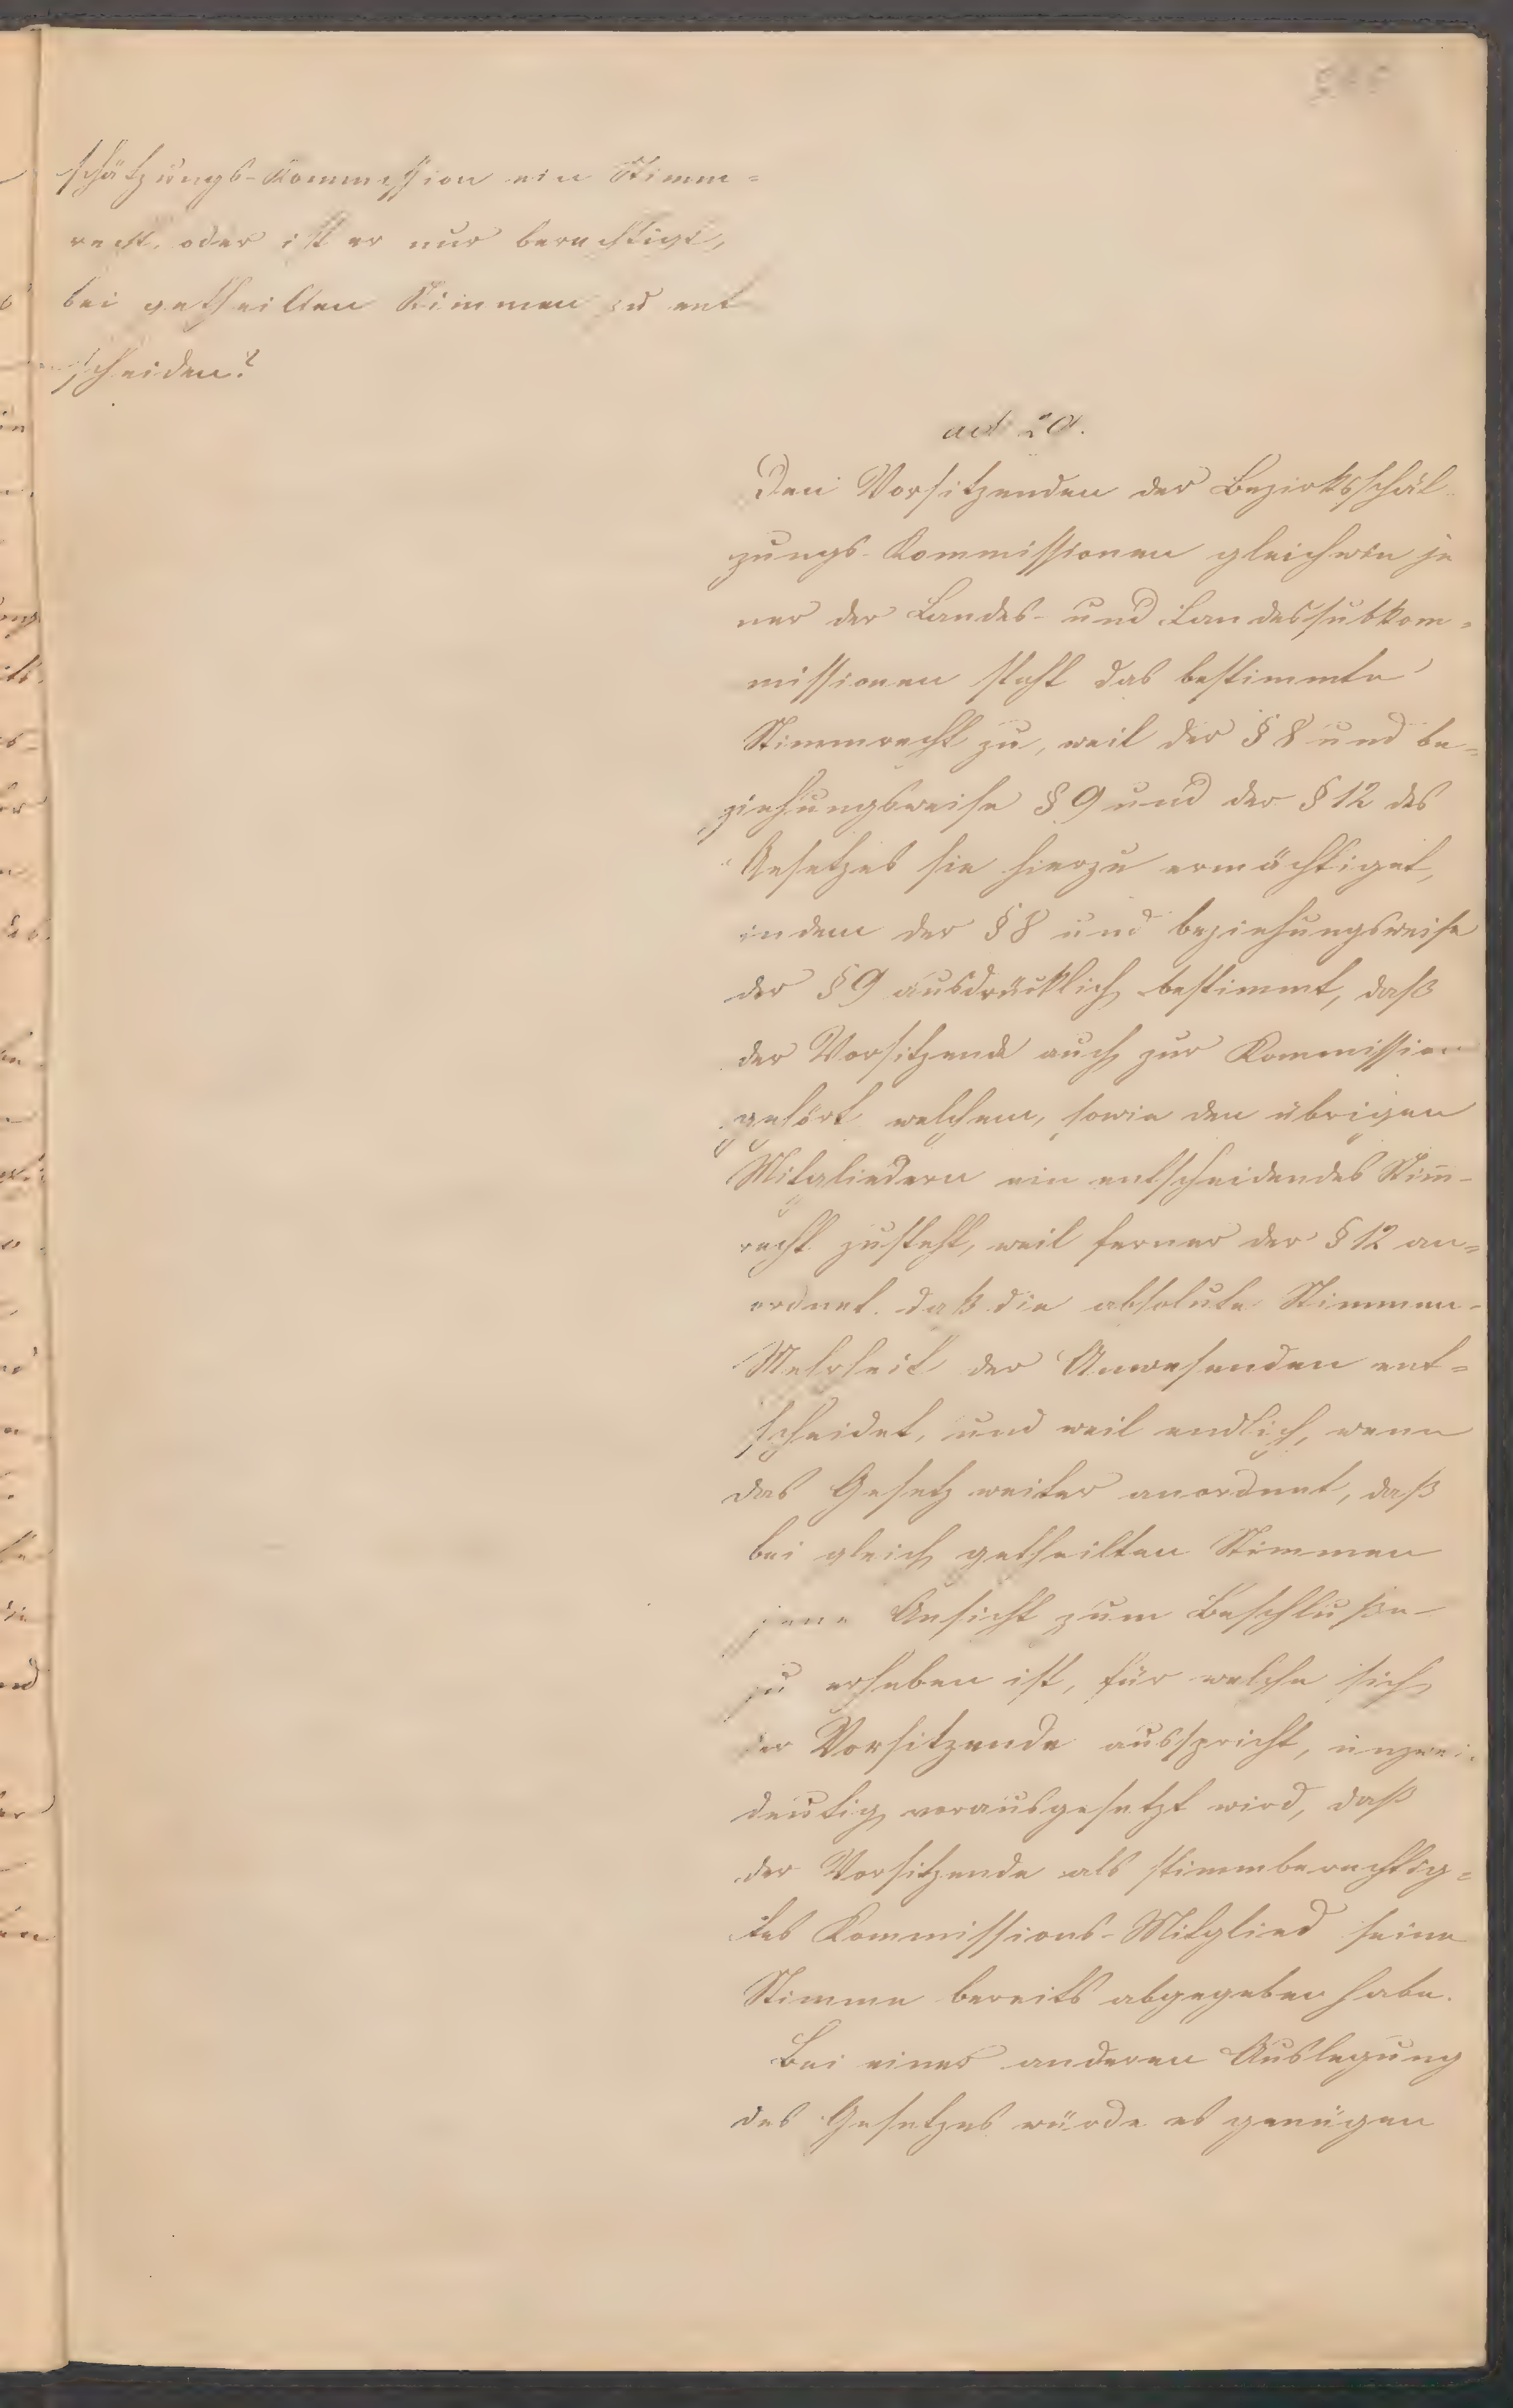 schätzungs-Kommission ein Stimm=
recht, oder ist er nur berechtigt,
bei getheilten Stimmen zu ent
scheiden?
ad 20.
Den Vorsitzenden der Bezirksschät
zungs-Kommissionen gleichwie je
ner der Landes- und Landessubkom=
missionen steht das bestimmte
Stimmrecht zu, weil der § 8 und be=
ziehungsweise § 9 und der § 12 des
Gesetzes sie hierzu ermächtiget,
indem der § 8 und beziehungsweise
der § 9 ausdrücklich bestimmt, daß
der Vorsitzende auch zur Kommission
gehört welchem, sowie den übrigen
Mitgliedern ein entscheidendes Stim̅-
recht zusteht, weil ferner der § 12 an=
ordnet, daß die absolute Stimmen-
Mehrheit der Anwesenden ent=
scheidet, und weil endlich, wenn
das Gesetz weiter anordnet, daß
bei gleich getheilten Stimmen
jene Ansicht zum Beschluße
zu erheben ist, für welche sich
der Vorsitzende ausspricht, unzwei
deutig vorausgesetzt wird, daß
der Vorsitzende als stimmberechtig=
tes Kommissions-Mitglied seine
Stimme bereits abgegeben habe.
Bei einer anderen Auslegung
des Gesetzes würde es genügen